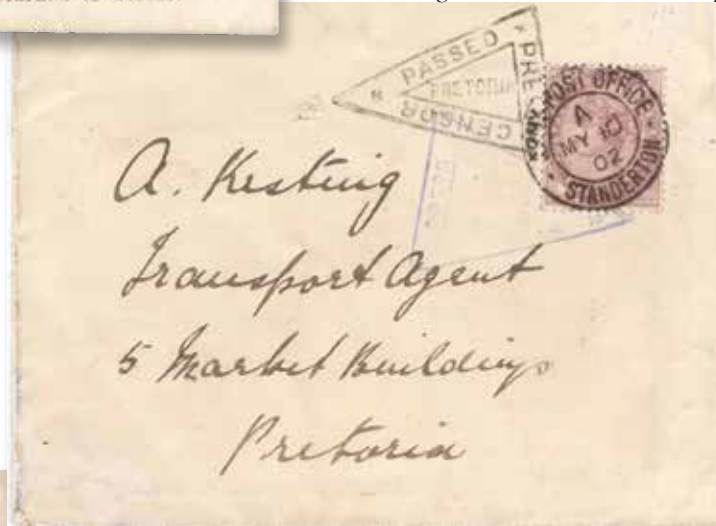 PASSED
PRETORIA
CENSOR
POST OFFICE
A
MY 10
02
STANDERTON
A. Kesting
Transport Agent
5 Market Buildings
Pretoria